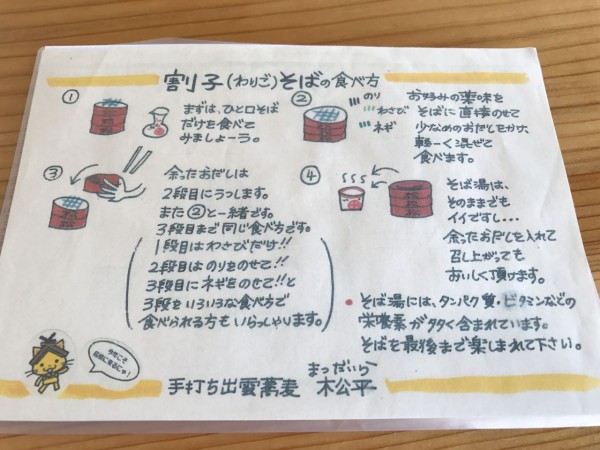 割り子(わりご)そばの食べ方
①
まずは、ひと口そば
だけを食べて
みましょーう。
②
のり
わさび
ネギ
お好みの薬味を
そばに直接のせて
少なめのおだしをかけ、
軽ーく混ぜて
食べます。
③
余ったおだしは
2段目にうつします。
また②と一緒です。
3段目まで同じ食べ方です。
1段目はわさびだけ!!
2段目はのりをのせて!!
3段目にネギをのせて!!と
3段をいろいろな食べ方で
食べられる方もいらっしゃります。
④
そば湯は、
そのままでも
イイですし...
余ったおだしを入れて
召し上がっても
おいしく頂けます。
• そば湯には、タンパク質・ビタミンなどの
栄養素が多く含まれています。
そばを最後まで楽しまれて下さい。
まつだいら
手打ち出雲蕎麦 松平